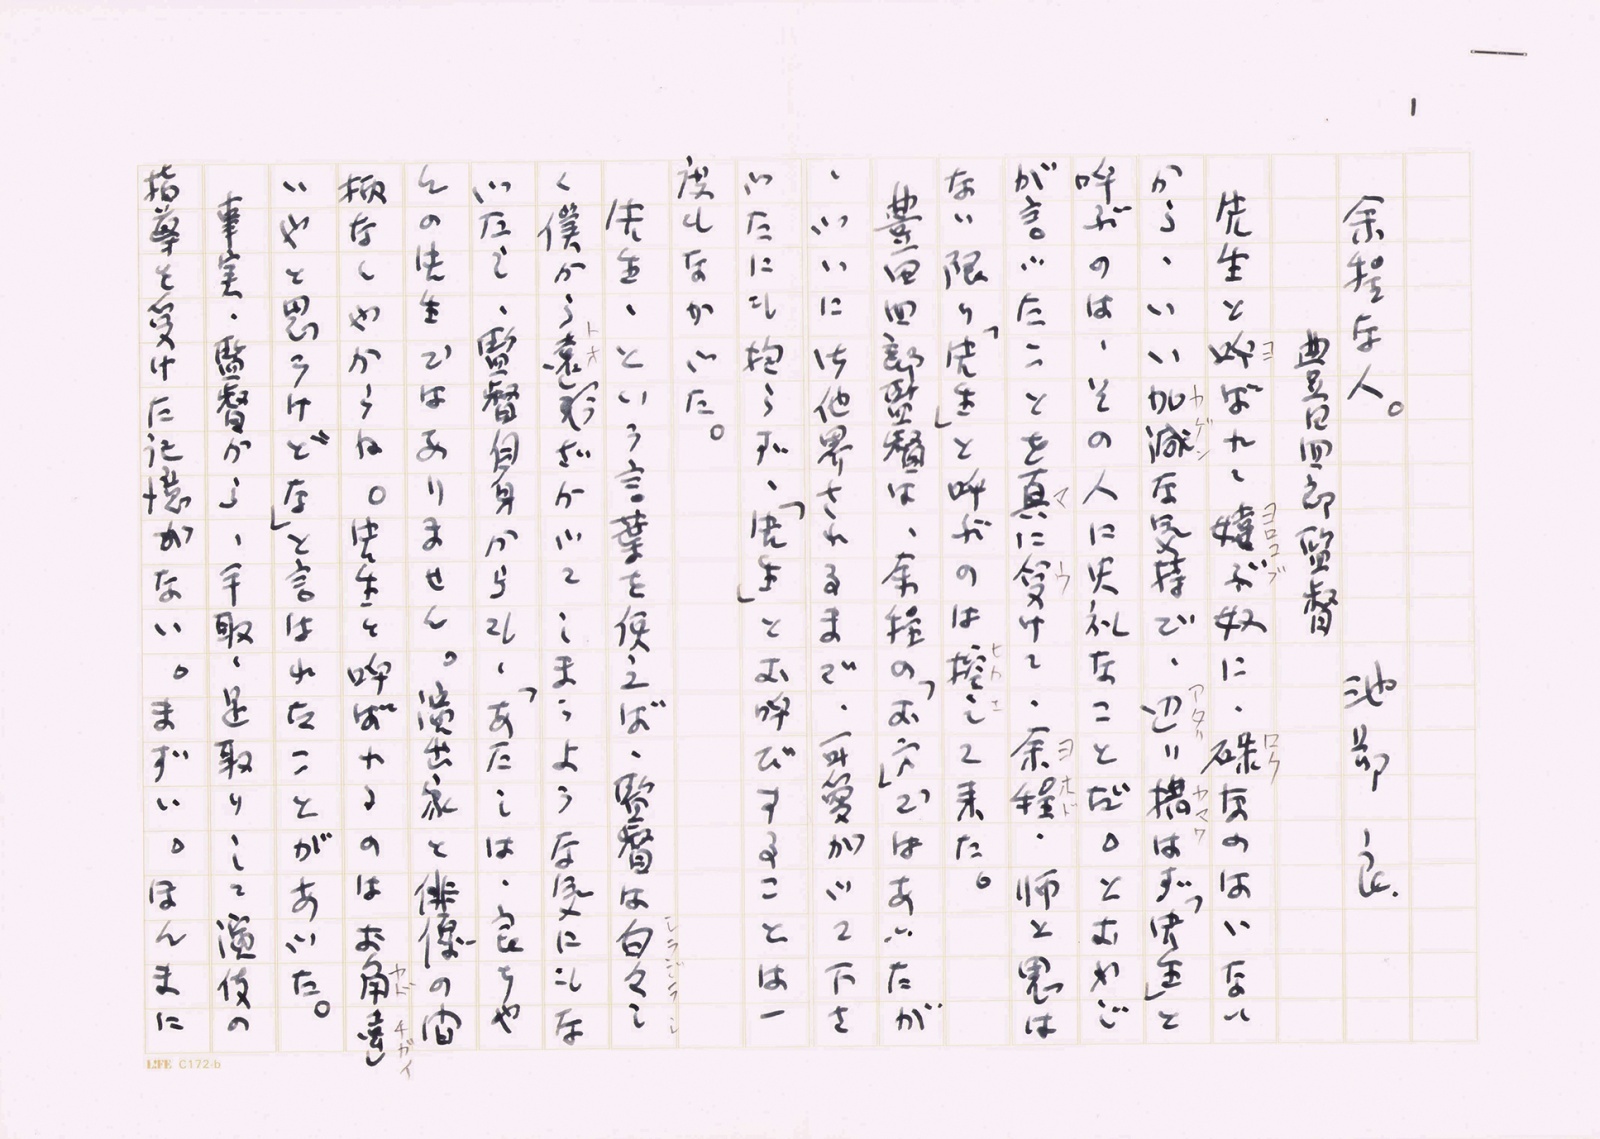 1
余程な人。 池部 良.
豊田四郎監督
先生と呼ばれて嬉ぶ奴に、碌なのはいない
から、いい加減な気持で、辺り構はず「先生」と
呼ぶのは、その人に失礼なことだ。とおやじ
が言ったことを真に受けて、余程、師と思は
ない限り「先生」と呼ぶのは控えて来た。
豊田四郎監督は、余程の「お穴」ではあったが
、いいに は他界されるまで、可愛がって下さ
ったにも拘らず、「先生」とお呼びすることは一
度もなかった。
先生、という言葉を使えば、監督は白々し
く僕から遠ざかってしまうような気にもな
ったし、監督自身からも、「あたしは、良ちや
んの先生ではありません。演出家と俳優の間
柄なんやからね。先生と呼ばれるのはお角違
いやと思うけどな」と言はれたことがあった。
事実、監督から、手取、足取りして演技の
指導を受けた記憶がない。まずい。ほんまに
ヨ
ヨロコブ
ロク
カゲン
アタリ
カマワ
マ
ウ
ヨホド
ヒカエ
シラジラシ
トオ
カド
チガイ
LIFE C172-b